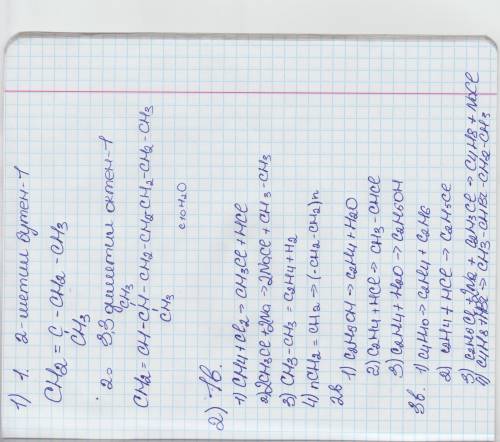 1) 1. 2-метил бутен-1
CH2 = C - CH2 - CH3
CH3
2. 3,3 диметил октен-1
CH3
CH2 = CH - CH - CH2 - CH2 - CH2 - CH2 - CH3
CH3
2) 1в.
1) CH4 + Cl2 -> CH3Cl + HCl
2) 2CH3Cl + 2Na -> 2NaCl + CH3 - CH3
3) CH3 - CH3 = C2H4 + H2
4) nCH2 = CH2 -> (-CH2-CH2)n
2в
1) C2H5OH -> C2H4 + H2O
2) C2H4 + HCl -> CH3 - CHCl
3) C2H4 + H2O -> C2H5OH
3в.
1) C4H10 -> C2H4 + C2H6
2) C2H4 + HCl -> C2H5Cl
3) C2H5Cl + 2Na + C2H5Cl -> C4H8 + NaCl
4) C4H8 + HBr -> CH3-CHBr-CH2-CH3